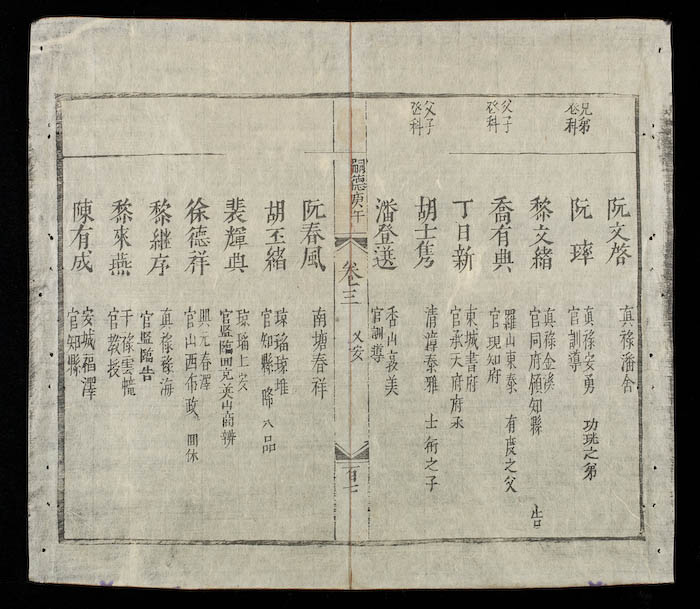 兄弟
登科
父子
登科
父子
登科
阮文啓 真祿潘舍
阮 真祿安勇
官訓導 功珗之弟
黎文緒 真祿金溪
官同府領知縣 告
喬有典 羅山東泰
官現知府 有慶之父
丁日新 東城書府
官承天府府丞
胡士雋 清漳泰雅 士衍之子
潘登選 香山義美
官訓導
嗣德庚午 卷之三 乂安 百七
阮春風 南塘春祥
胡丕緒 瓊瑠瓊堆
官知縣 降八品
裴輝典 瓊瑠上安
官監臨回克英山商辨
徐德祥 興元春澤
官山西布政 回休
黎繼序 真祿祿海
官監臨告
黎來燕 干祿雲幢
官教授
陳有成 安城福澤
官知縣